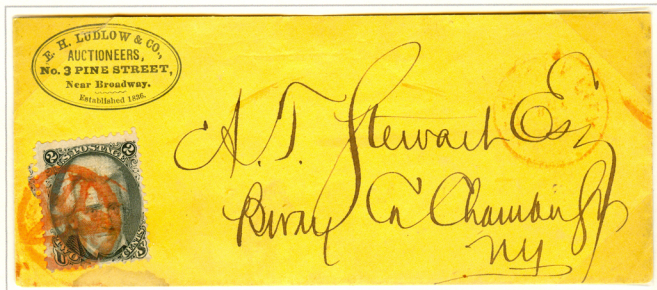 E. H. LUDLOW & CO.,
AUCTIONEERS,
No. 3 PINE STREET,
Near Broadway.
Established 1836.
U.S. POSTAGE
2 2
A. T. Stewart Esq
Bway Cor Chambers St
NY